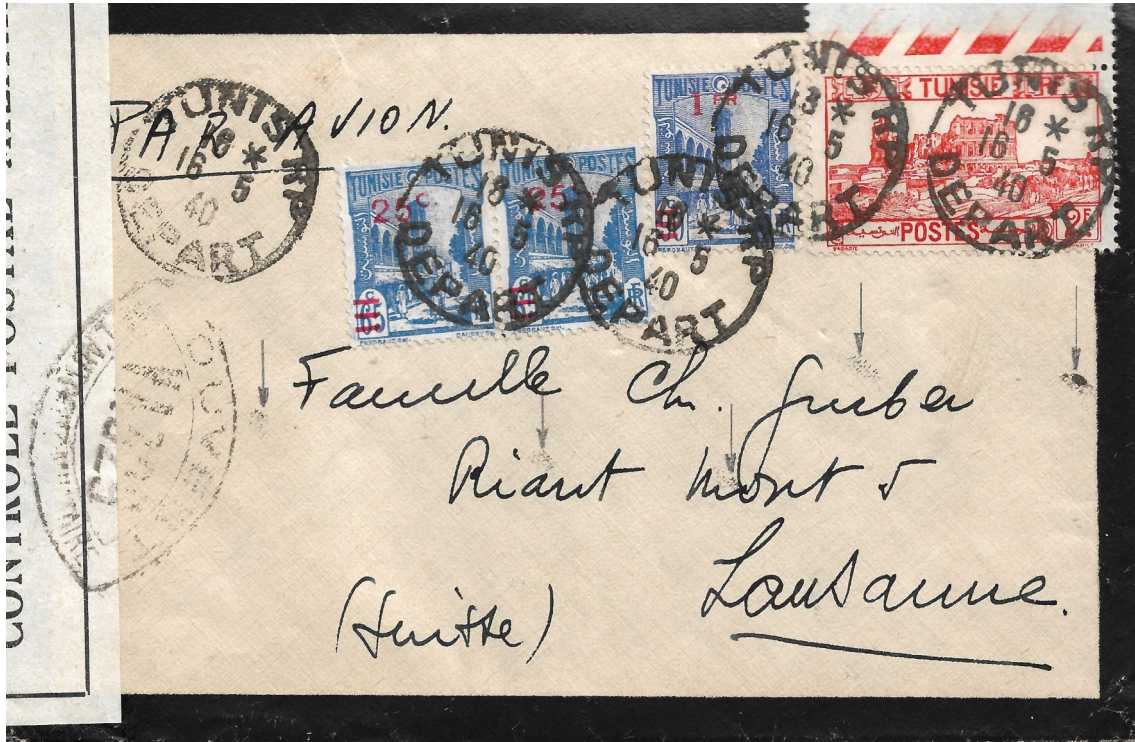 CONTROLE POSTAL
PAR AVION.
TUNIS RP
18 *
16 5
40
DEPART
TUNISIE POSTES
25c
65
TUNISIE POSTES
25
65
TUNIS RP
18 *
16 5
40
DEPART
TUNIS RP
18 *
16 5
40
DEPART
TUNISIE POSTES
1 FR
TUNIS RP
18 *
16 5
40
DEPART
TUNISIE RF
POSTES 2F
TUNIS RP
18 *
16 5
40
DEPART
Famille Ch. Gruber
Riant Mont 5
Lausanne.
(Suisse)